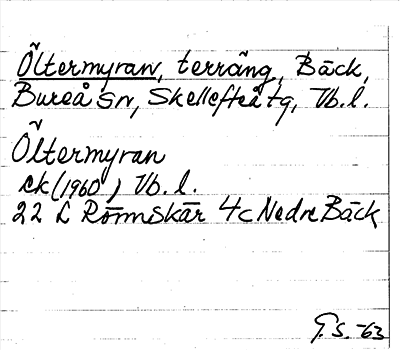 Öltermyran, terräng, Bäck,
Bureå sn, Skellefteå tg, Vb. l.
Öltermyran
ek (1960) Vb. l.
22 L Rörmskär 4c Nedre Bäck
G. S. -63